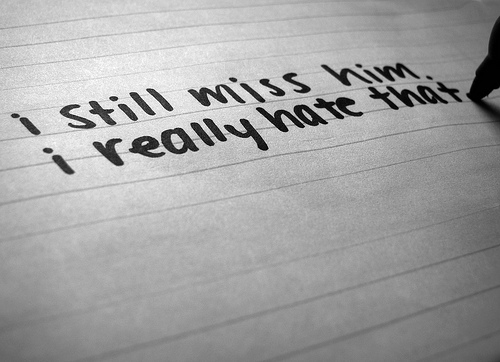 i still miss him.
i really hate that